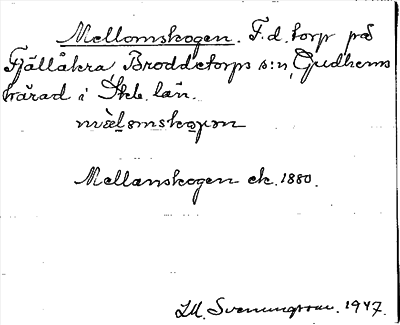 Mellomskogen. F.d. torp på
Fjällåkra, Broddetorps s:n, Gudhems
härad i Skb. län.
Mellanskogen ek. 1880.
Svenungsson. 1947.